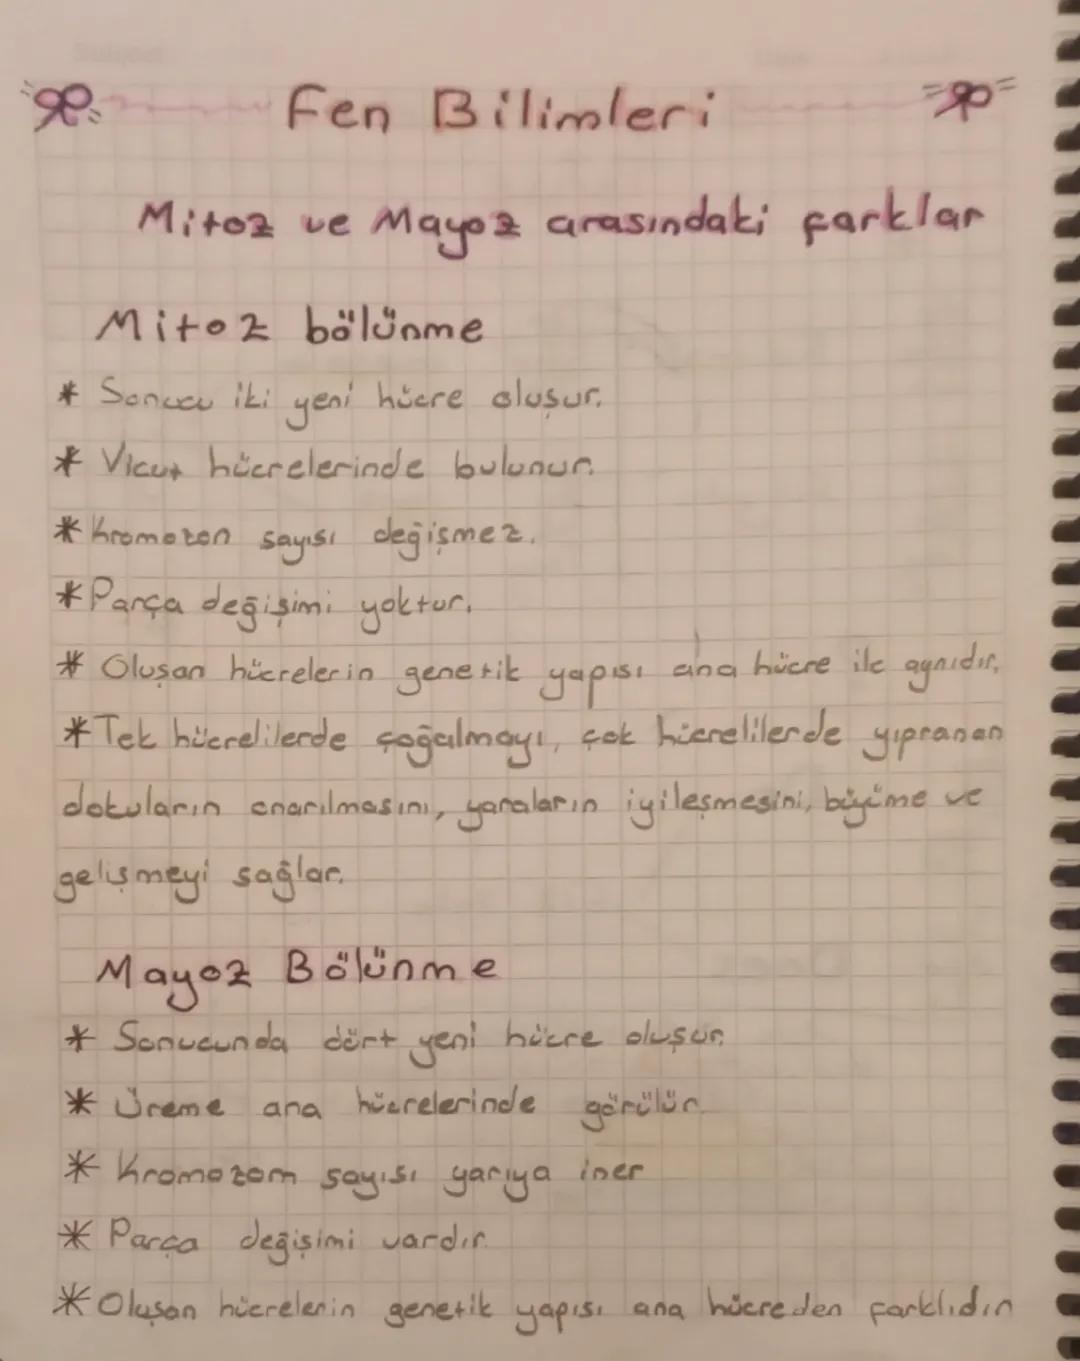 Fen Bilimleri
Mitoz ve Mayoz arasındaki farklar
Mitoz bölünme
* Sonucu iki yeni hücre oluşur.
* Vicut hücrelerinde bulunur.
* Kromozon sayısı değişmez.
* Parça değişimi yoktur.
* Oluşan hücrelerin genetik yapısı ana hücre ile aynıdır.
* Tek hücrelilerde çoğalmayı, çok hücrelilerde yıpranan
dokuların onarılmasını, yaraların iyileşmesini, büyüme ve
gelişmeyi sağlar.
Mayoz Bölünme
* Sonucunda dört yeni hücre oluşur.
* Üreme ana hücrelerinde görülür.
* Kromozom sayısı yarıya iner
* Parça değişimi vardır.
* Oluşan hücrelerin genetik yapısı ana hücreden farklıdır